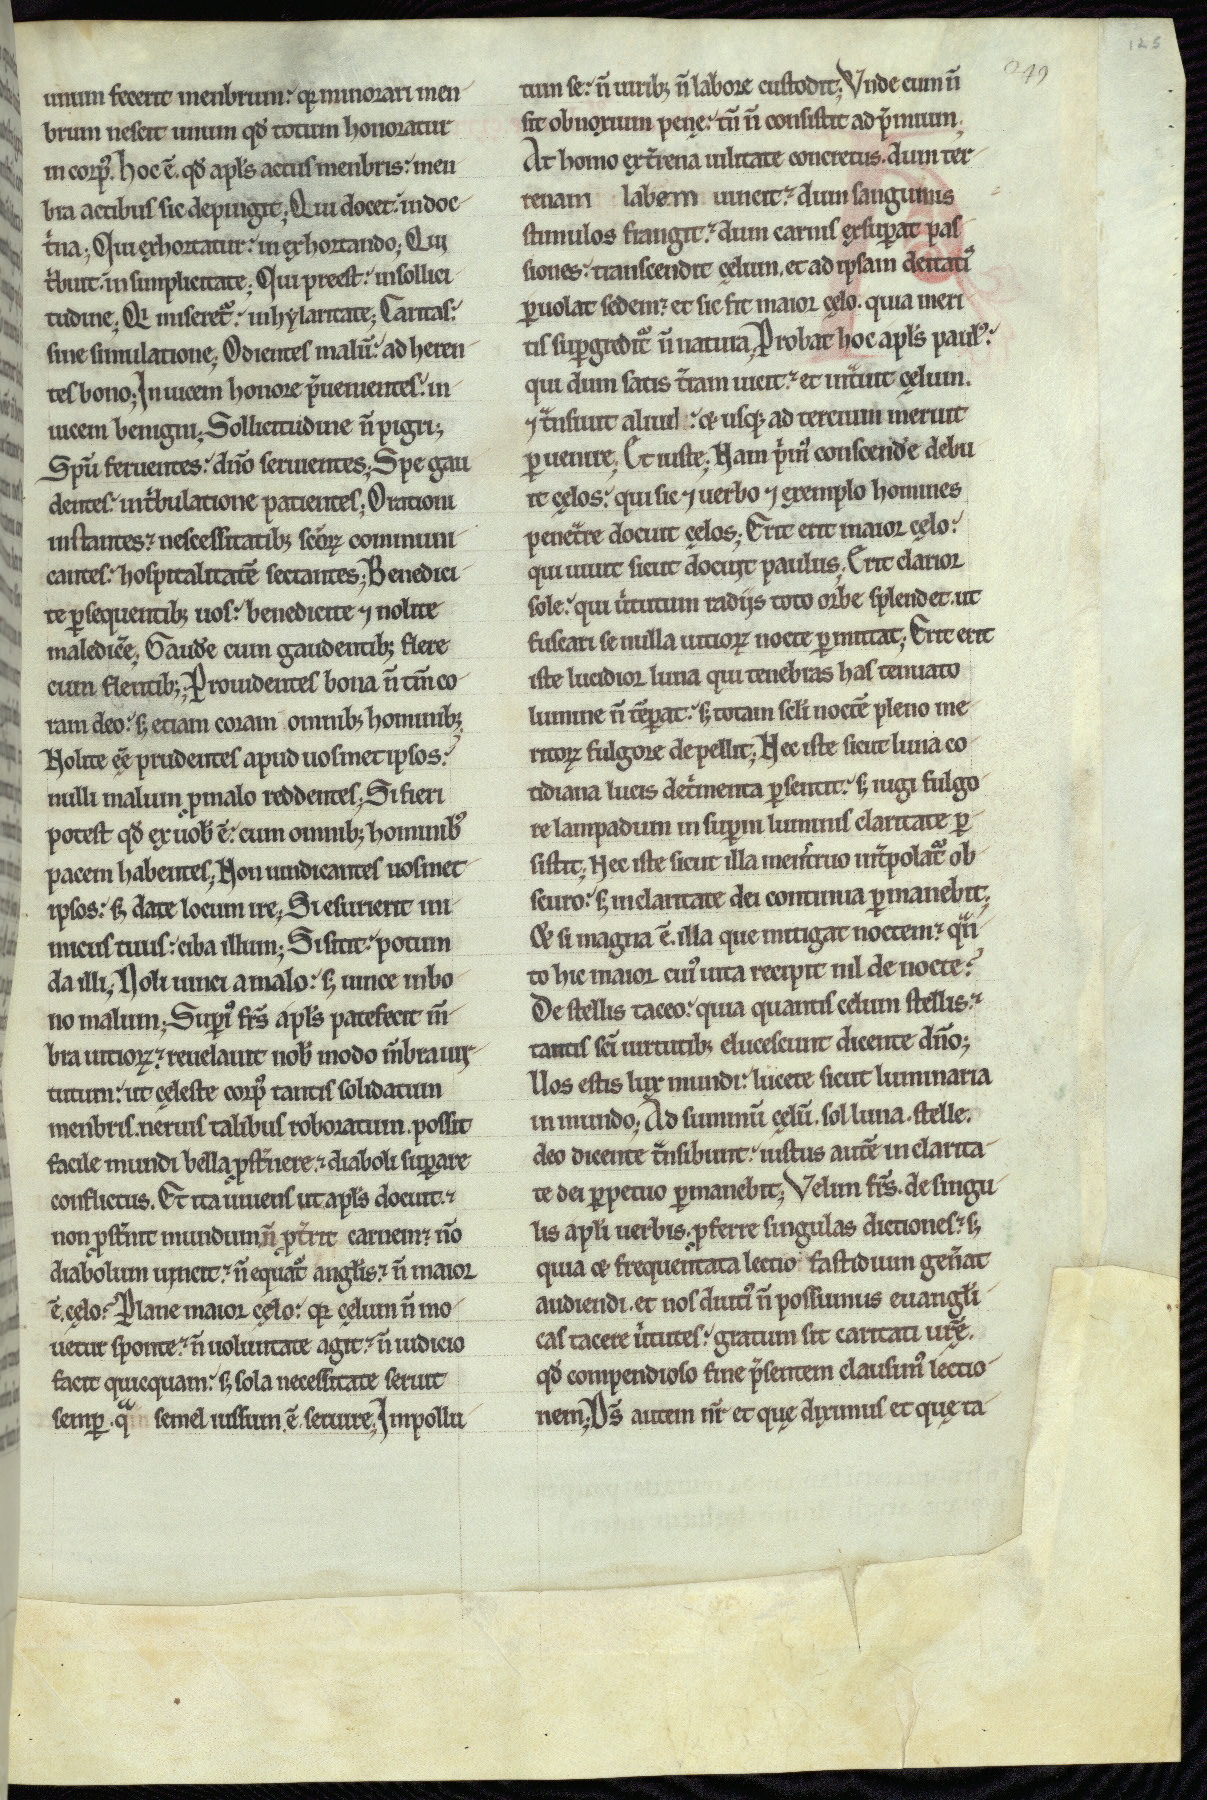 unum fecerit menbrum: qr minorari men
brum nescit unum qđ totum honoratur
in corpe. hoc ē. qđ apľs actus menbris: men
bra actibus sic depingit; Qui docet: in doc
tͥna; Qui exhortatur: in exhortando; Qui
tͥbuit: in simplicitate; Qui preest: in sollici
tudine; Qi miseretᷣ: in hylaritate; Caritas:
sine simulatione; Odientes malū: ad heren
tes bono; Inuicem honore p̄uenientes: in
uicem benigni; Sollicitudine ñ pigri;
Spū feruentes: dño seruientes; Spe gau
dentes: in tͥbulatione patientes; Orationi
instantes: nescessitatibꝫ scōꝝ communi
cantes: hospitalitatē sectantes; Benedici
te ꝑsequentibꝫ uos: benedicite ⁊ nolite
maledicē; Gaudē cum gaudentibꝫ flere
cum flentibꝫ; Prouidentes bona ñ tm̄ co
ram deo: sꝫ etiam coram omnibꝫ hominibꝫ.
Nolite eē prudentes apud uosmet ipsos:
nulli malum ꝓ malo reddentes; Si fieri
potest qđ ex uob̄ ē: cum omnibꝫ hominibꝰ
pacem habentes; Non uindicantes uosmet
ipsos: sꝫ date locum ire; Si esurierit ini
micus tuus: ciba illum; Si sitit: potum
da illi; Noli uinci a malo: sꝫ uince in bo
no malum; Supiꝰ frs̄ apľs patefecit m̄
bra uitioꝝ: reuelauit nob̄ modo m̄bra uir
tutum: ut cęleste corpꝰ tantis solidatum
menbris. neruis talibus roboratum. possit
facile mundi bella ꝓsternere ⁊ diaboli suꝑare
conflictus. Et ita uiuens ut apľs docuit:
non ꝓsternit mundum ñ ꝓterit carnem: nō
diabolum uincit: ñ equatᷣ angľis: ñ maior
ē. cęlo: Plane maior cęlo: qr cęlum ñ mo
uetur sponte: ñ uoluntate agit: ñ iudicio
facit quicquam: sꝫ sola necessitate seruit
semꝑ. qͣ semel iussum. ē. seruire; Impollu
tum se: ñ uiribꝫ ñ labore custodit; Vnde cum ñ
sit obnoxium penę: tñ ñ consistit ad p̄mium;
At homo extͬena uilitate concretus. dum ter
renam labem uincit: dum sanguinis
stimulos frangit: dum carnis exsuꝑat pas
siones: transcendit cęlum. et ad ipsam deitatꝭ
ꝑuolat sedem: et sic fit maior cęlo. quia meri
tis supgreditᷣ ñ natura; Probat hoc apľs paulꝰ:
qui dum satis tͬram uicit: et intͣuit cęlum.
⁊ tͣnsiuit aliud: & usqꝫ ad tercium meruit
ꝑuenire; Et iuste; Nam pͥmꝰ conscendē debu
it cęlos: qui sic ⁊ uerbo ⁊ exemplo homines
penetͣre docuit cęlos; Erit erit maior cęlo:
qui uiuit sicut docuit paulus; Erit clarior
sole: qui uͥtutum radijs toto orbe splendet. ut
fuscari se nulla uitioꝝ nocte ꝑmittat; Erit erit
iste lucidior luna qui tenebras has tenuato
lumine ñ tēꝑat: sꝫ totam scľi noctē pleno me
ritoꝝ fulgore depellit; Nec iste sicut luna co
tidiana lucis detͥmenta ꝑsentit: sꝫ iugi fulgo
re lampadum in suꝑni luminis claritate ꝑ
sistit; Nec iste sicut illa menstruo intͬpolatᷣ ob
scuro: sꝫ in claritate dei continua ꝑmanebit;
& si magna ē. illa que mitigat noctem: qͣn
to hic maior cuiꝰ uita recipit nil de nocte:
De stellis taceo: quia quantis celum stellis:
tantis scī uirtutibꝫ elucescunt dicente dño;
Uos estis lux mundi: lucete sicut luminaria
in mundo; Ad summū cęlū. sol luna. stelle.
deo dicente tͣnsibunt: iustus autē in clarita
te dei ꝑpetuo ꝑmanebit; Velim frs̄. de singu
lis apľi uerbis. ꝓferre singulas dictiones: sꝫ
quia & frequentata lectio fastidium genͬat
audiendi. et nos diutiꝰ ñ possumus euangľi
cas tacere uͥtutes: gratum sit caritati ur̄ē.
qđ compendioso fine p̄sentem clausimꝰ lectio
nem; Ds̄ autem nr̄ et quę diximus et quę ta
249
125